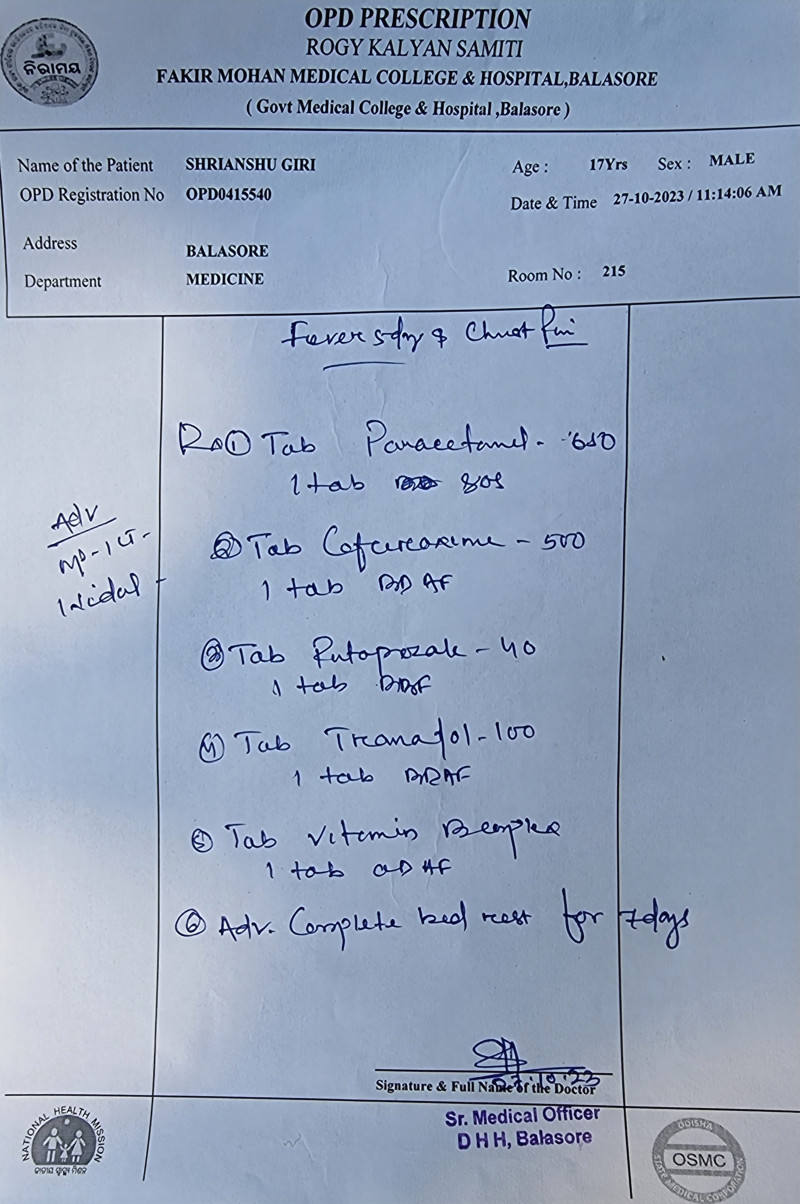 OPD PRESCRIPTION
ROGY KALYAN SAMITI
FAKIR MOHAN MEDICAL COLLEGE & HOSPITAL,BALASORE
( Govt Medical College & Hospital ,Balasore )
ନିରାମୟ
Name of the Patient SHRIANSHU GIRI Age : 17Yrs Sex : MALE
OPD Registration No OPD0415540 Date & Time 27-10-2023 / 11:14:06 AM
Address BALASORE
Department MEDICINE Room No : 215
Fever 5day & Chest Pain
① Tab Paracetamol - 650
1 tab SOS
Adv
② Tab Cefuroxime - 500
1 tab BD AF
③ Tab - 40
1 tab
④ Tab Tramadol - 100
1 tab BDAF
⑤ Tab Vitamin Bcomplex
1 tab OD AF
⑥ Adv. Complete bed rest for 7days
27.10.23
Signature & Full Name of the Doctor
Sr. Medical Officer
D H H, Balasore
NATIONAL HEALTH MISSION
ODISHA
OSMC
STATE MEDICAL CORPORATION